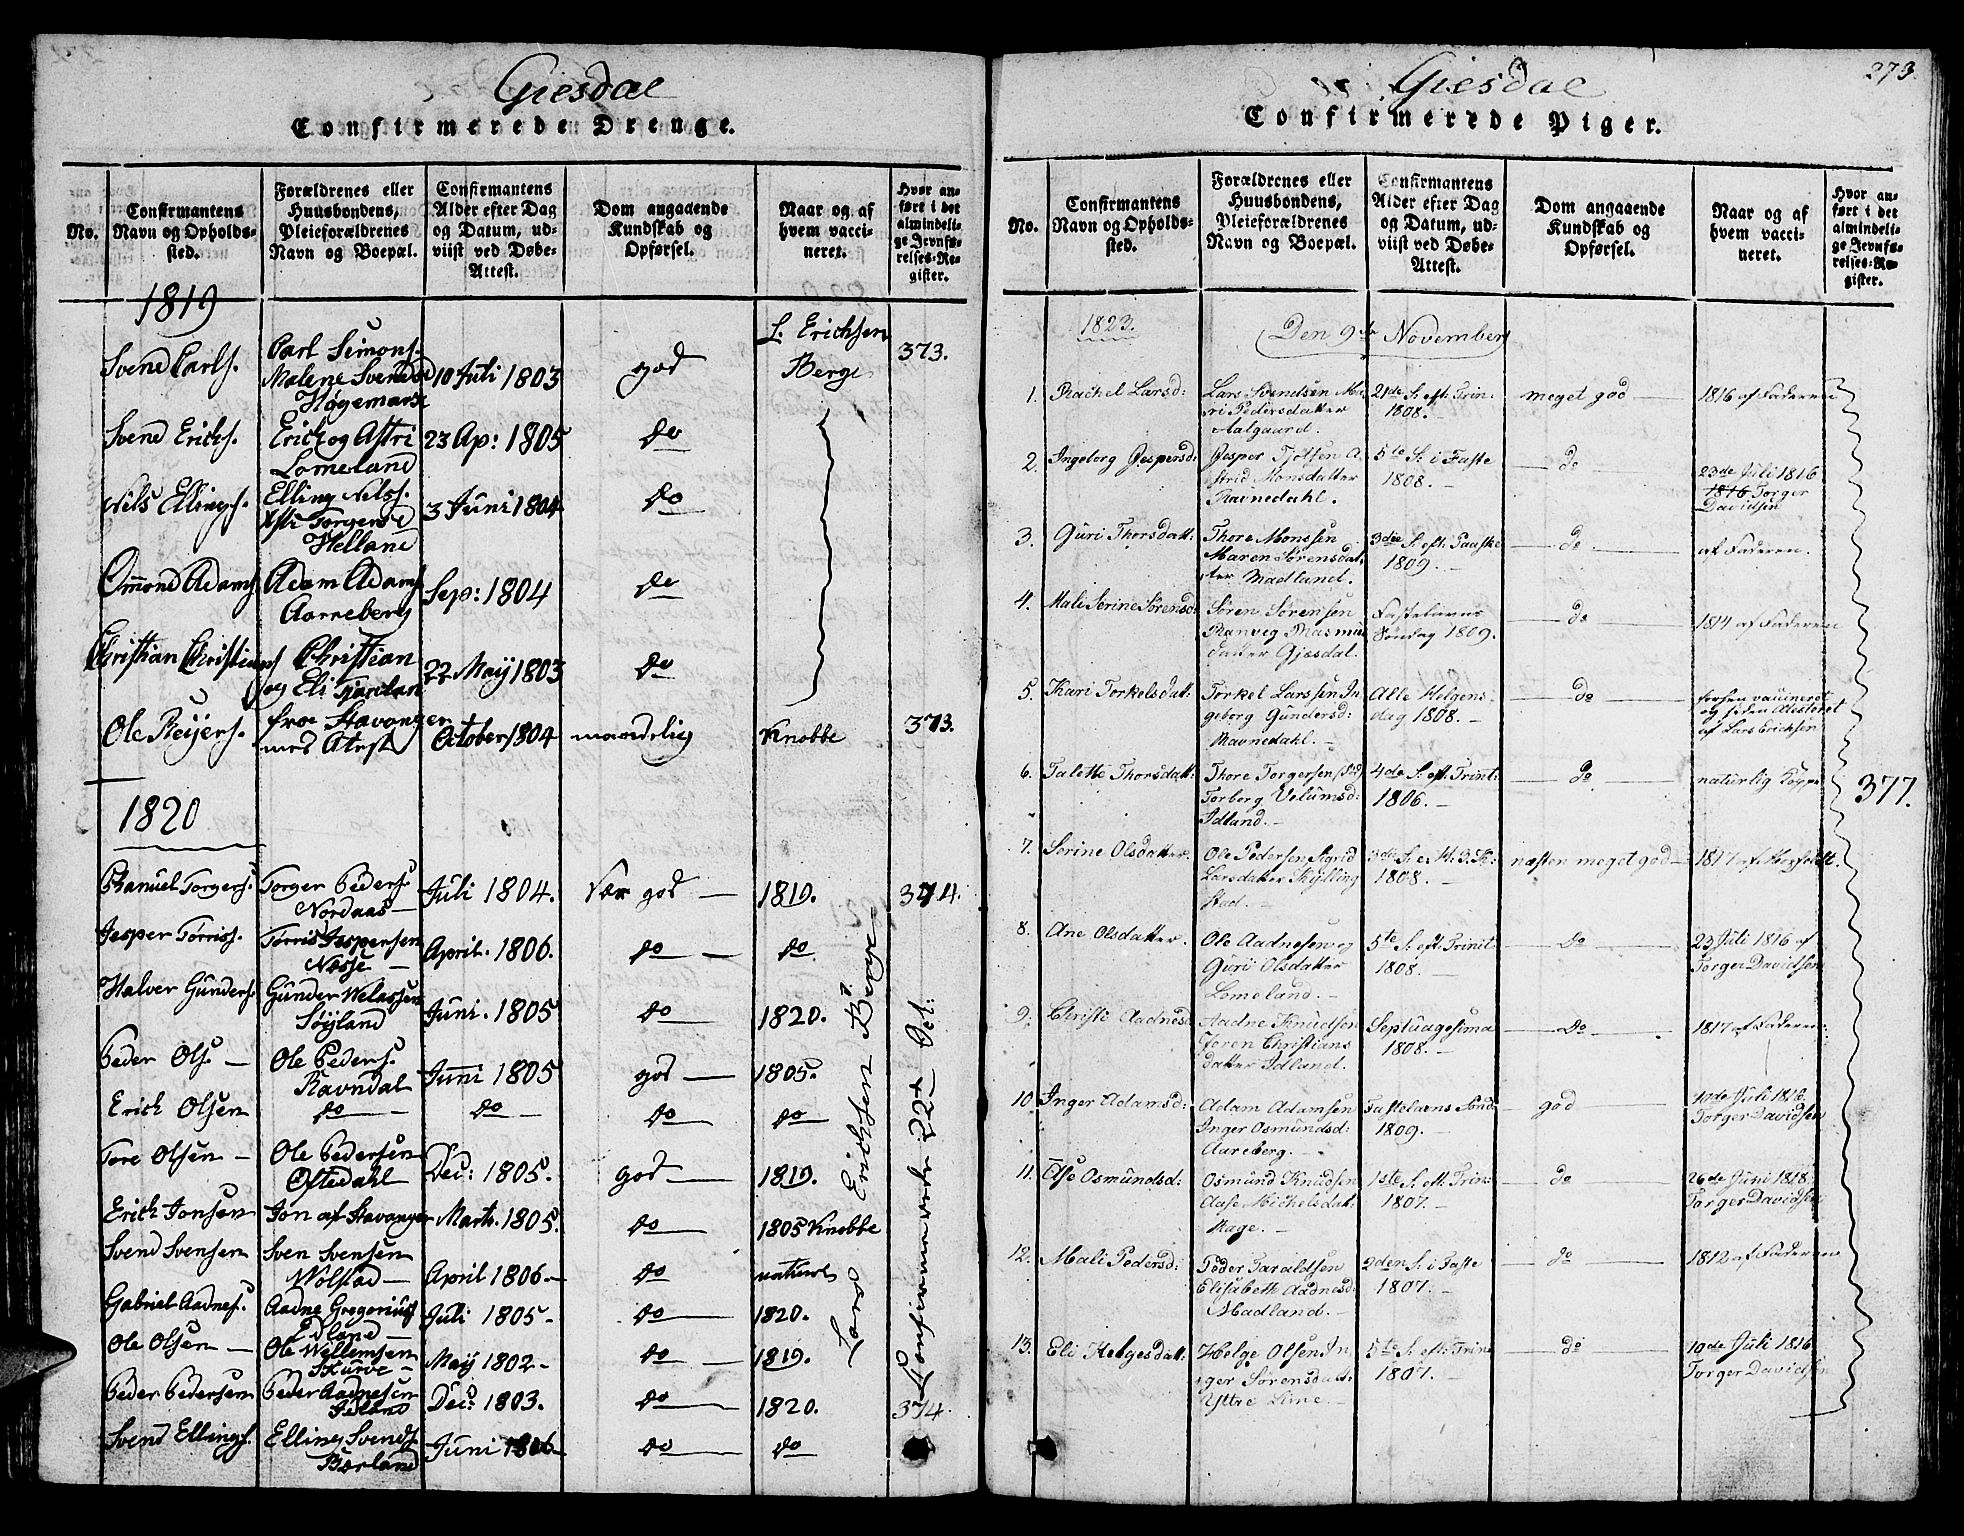 Giesdal
Confirmerede Drenge.
No.
Confirmantens Navn og Opholds-sted.
Forældrenes eller Huusbondens, Pleieforældrenes Navn og Boepæl.
Confirmantens Alder efter Dag og Datum, ud-viist ved Døbe-Attest.
Dom angaaende Kundskab og Opførsel.
Naar og af hvem vacci-neret.
Hvor an-ført i det almindeli-ge Jevnfø-relses-Re-gister.
1819
Svend Carls.
Carl Simons.
Malene Svends
Høgemark
10 Juli 1803
god
L. Erichsen
Berge
373.
Svend Erichs.
Erich og Astri
Lomeland
23 Ap: 1805
do
Nils Ellings.
Elling Nels.
Torgers d
Helland
3 Juni 1804
do
Ommond Adams.
Adam Adams
Aarreberg
Sep: 1804
do
Christian Christians
Christian
og Eli Tjaadlan
22 May 1803
do
Ole Reijers.
fra Stavanger
med Atest
October 1804
maadelig
Knobbe
373.
1820
Ranuel Torgers.
Torger Peders.
Nordaas
Juli 1804.
god
1819.
374.
Jesper Torriss.
Torris Jespersen
Næsse
April. 1806.
do
do.
Halver Gunders.
Gunder Welassen
Søyland
Juni. 1805
do
1820.
Peder Ols.
Ole Peders.
Ravndal
Juni 1805
god
1805.
Erich Olsen
do
do
do
do
Tore Olsen
Ole Pedersen
Oftedahl
Dec: 1805.
god
1819.
Erich Jonsen
Jon af Stavanger
Marts. 1805.
do
1805 Knobbe
Svend Svensen
Sven Svensen
Wolstad
April 1806
do
Gabriel Aadnes.
Aadne Gregorius
Edland
Juli 1805
do
1820.
Ole Olsen
Ole Wellemsen
Skurve
May 1802
do
1819.
Peder Pedersen
Peder Aadnesen
Idland
Dec: 1803.
do
1820.
374.
Svend Ellings.
Elling Svends
Bærland
Juni 1806
do
do
Lars Erichsen Berge
Confirmerede 22de Oct:
273.
Giesdal
Confirmerede Piger.
No.
Confirmantens Navn og Opholds-sted.
Forældrenes eller Huusbondens, Pleieforældrenes Navn og Boepæl.
Confirmantens Alder efter Dag og Datum, ud-viist ved Døbe-Attest.
Dom angaaende Kundskab og Opførsel.
Naar og af hvem vacci-neret.
Hvor an-ført i det almindeli-ge Jevnfø-relses-Re-gister.
1823.
Den 9de November
1.
Rachel Larsd:
Lars Svendsen Ma-
ri Pedersdatter
Aalgaard.
21de S. eft: Trin.
1808.
meget god
1816 af Faderen
2.
Ingeborg Jespersd:
Jesper Tjøtsen A-
strid Monsdatter
Ravnedahl.
5te S. i Faste
1808.
do
23de Juli 1816
1816 Torger
Davidsen
3.
Guri Thorsdatt:
Thore Monssen
Maren Sørensdat-
ter Madland.
3die S. eft: Paaske
1809.
do
af Faderen.
4.
Mali Serine Sørensd:
Søren Sørensen
Ranveg Rasmus
datter Gjæsdal.
Fastelavns
Søndag 1809.
do
1814 af Faderen
5.
Kari Torkelsdatt:
Torkel Larssen In-
geborg Gundersd:
Ravnedahl.
Alle Helgens
dag 1808.
do
forhen vaccineret
og siden Atesteret
af Lars Erichsen
6.
Talette Thorsdatt:
Thore Torgersen
Torborg Velumsd:
Idland.
4de S. eft: Trint:
1806.
do
naturlig Kopper
377.
7.
Serine Olsdatter.
Ole Pedersen Sigrid
Larsdatter Kylling
stad.
1808.
næsten meget god
8.
Ane Olsdatter.
Ole Aadnesen og
Guri Olsdatter
Lomeland.
5te S. eft: Trinit
1808.
do
23 Juli 1816 af
Torger Davidsen
9.
Christi Aadnesd
Aadne Knudsen
Joren Christians
datter Idland.
Septuagesima
1808.
do
1817 af Faderen
10
Inger Adamsd:
Adam Adamsen
Inger Osmundsd:
Aareberg.
Fastelavns Sønd
1809.
god
10de Juli 1816
Torger Davidsen
11.
Else Osmundsd:
Osmund Knudsen
Aase Michelsdat.
Rage.
1ste S. eft: Trin
1807.
do
26de Juni 1818.
Torger Davidsen
12.
Mali Pedersd:
Peder Taraldsen
Elisabeth Aadnesd:
Madland.
2den S. i Faste
1807.
do
1812 af Faderen
13.
Eli Helgesdatt:
Helge Olsen In
ger Sørensdatt:
Yttre Lime
5te S. eft: Trine
1807.
do
10de Juli 1816
Torger Davidsen